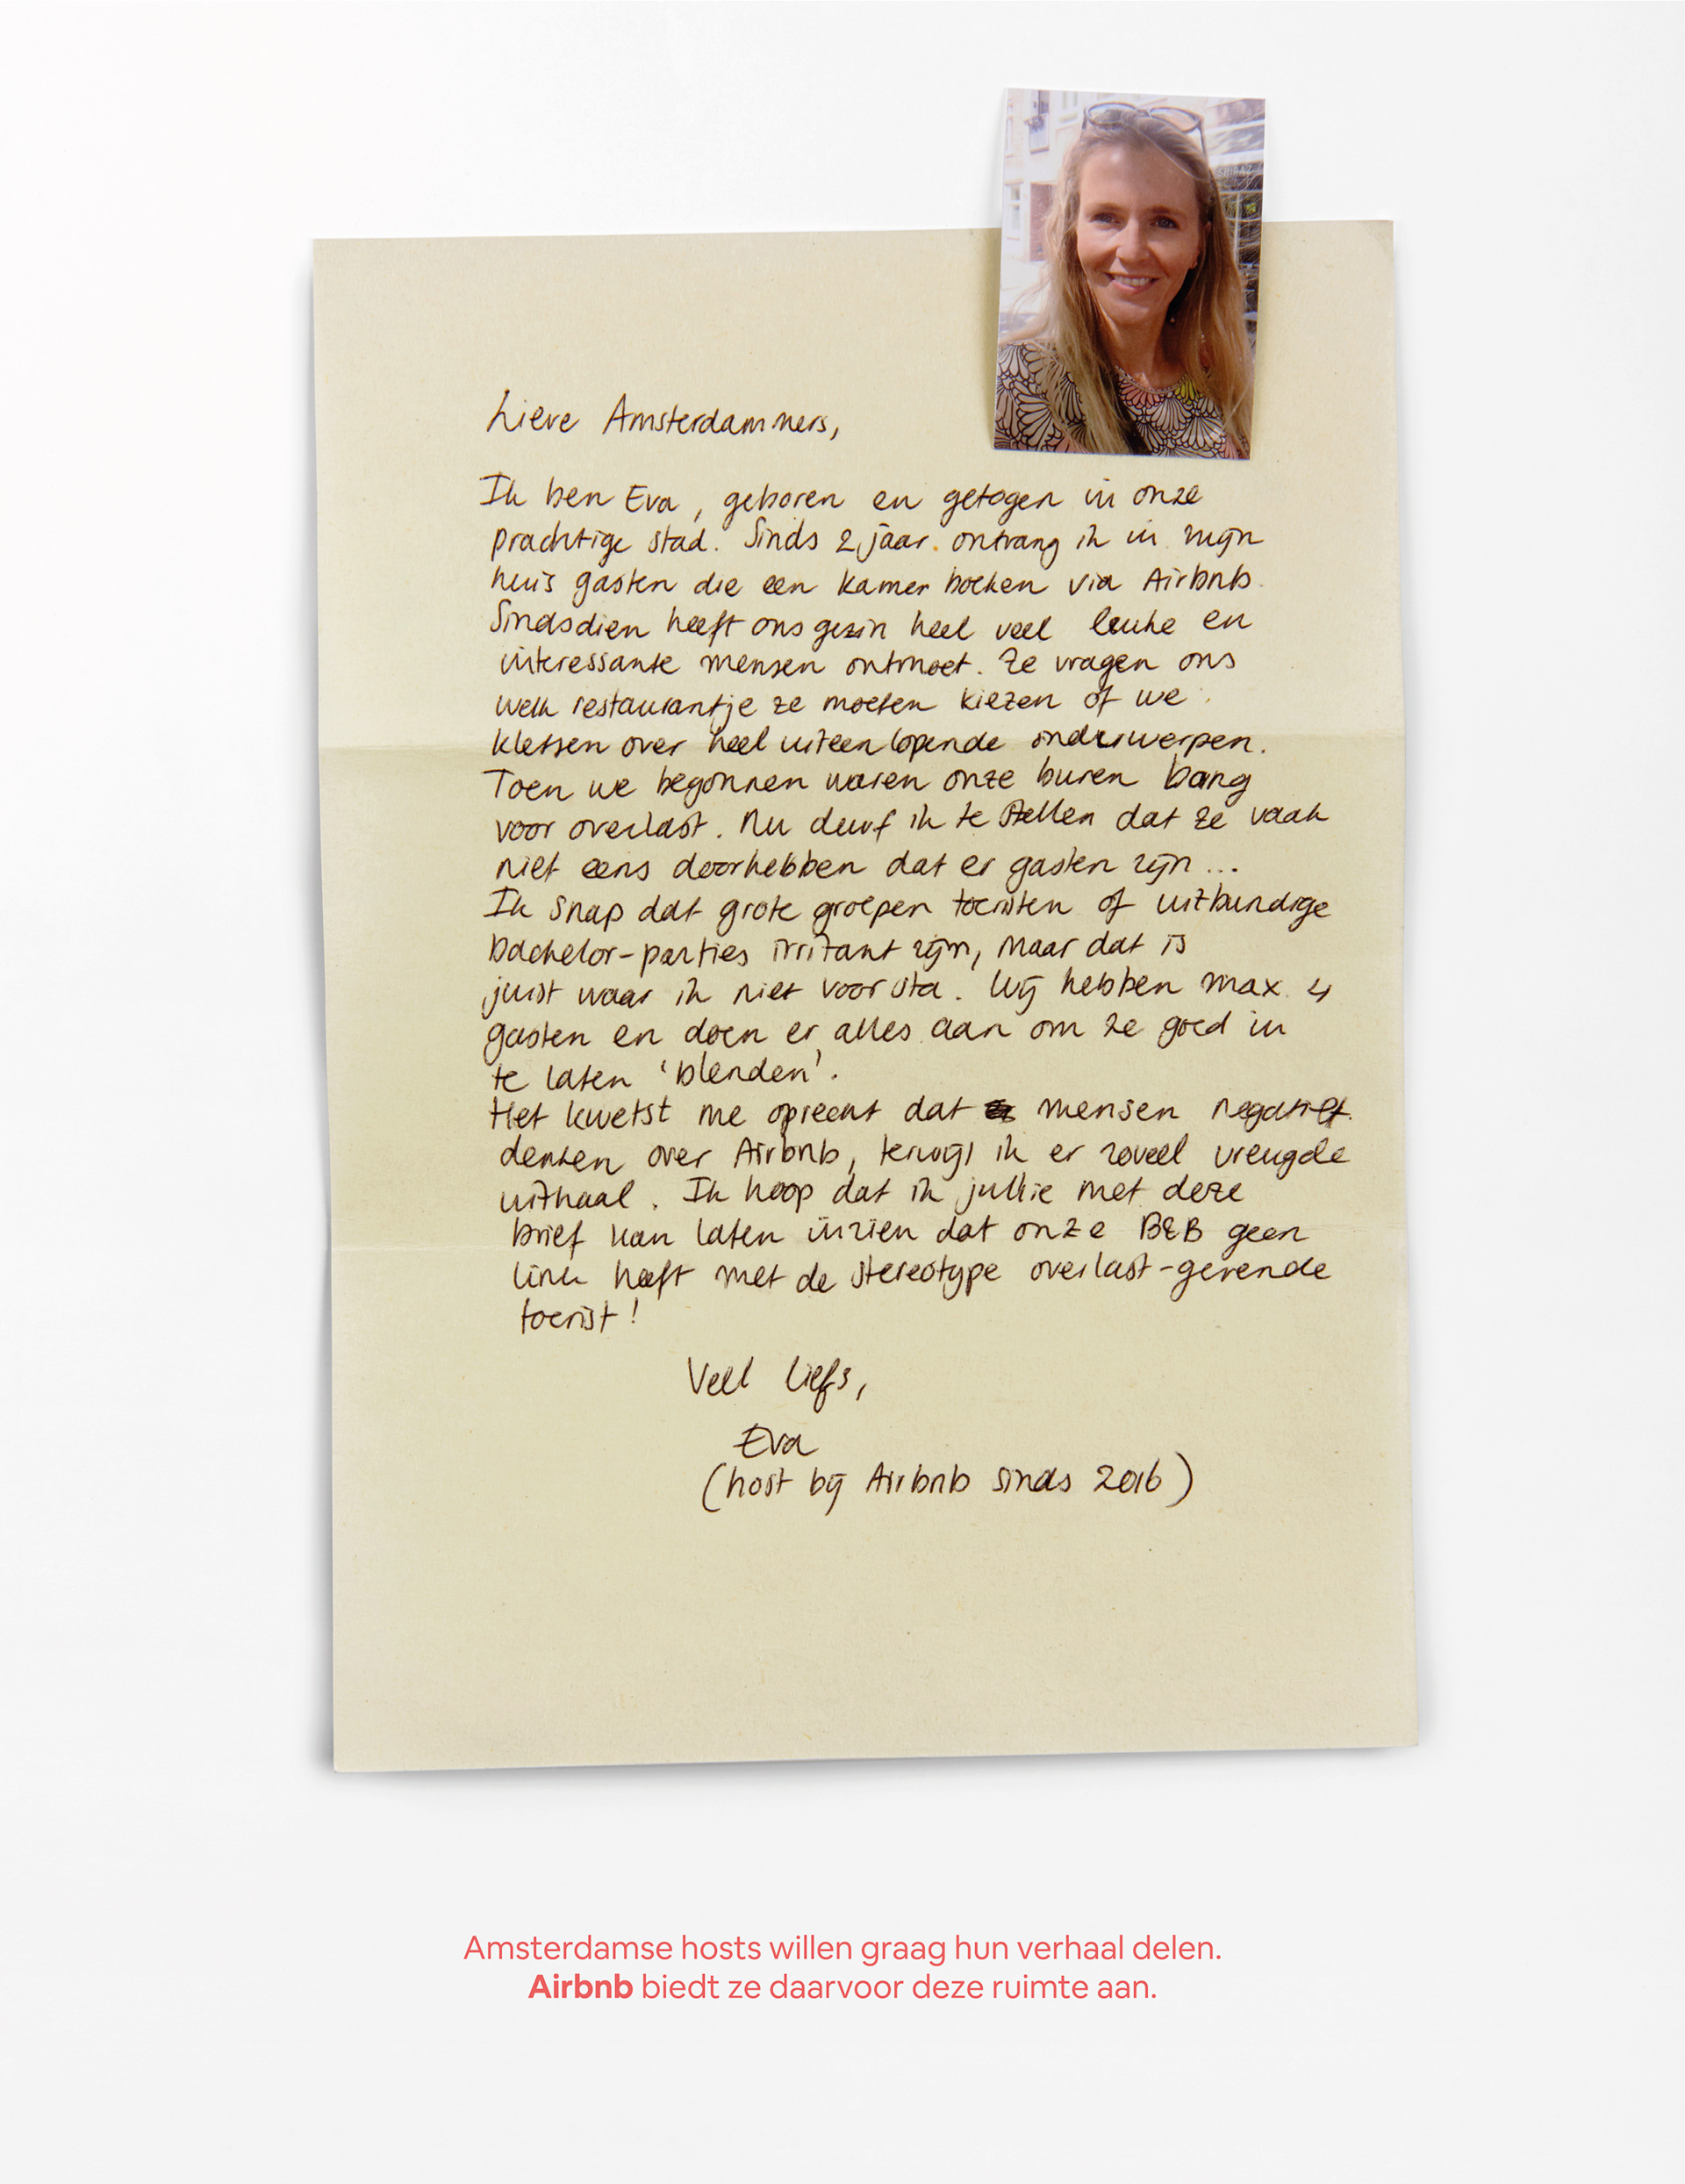 Lieve Amsterdammers,
Ik ben Eva, geboren en getogen in onze
prachtige stad. Sinds 2 jaar ontvang ik in mijn
huis gasten die een kamer boeken via Airbnb.
Sindsdien heeft ons gezin heel veel leuke en
interessante mensen ontmoet. Ze vragen ons
welk restaurantje ze moeten kiezen of we
kletsen over heel uiteenlopende onderwerpen.
Toen we begonnen waren onze buren bang
voor overlast. Nu durf ik te stellen dat ze vaak
niet eens doorhebben dat er gasten zijn...
Ik snap dat grote groepen toeristen of uitbundige
bachelor-parties irritant zijn, maar dat is
juist waar ik niet voor sta. Wij hebben max 4
gasten en doen er alles aan om ze goed in
te laten 'blenden'.
Het kwetst me oprecht dat mensen negatief
denken over Airbnb, terwijl ik er zoveel vreugde
uithaal. Ik hoop dat ik jullie met deze
brief kan laten inzien dat onze B&B geen
link heeft met de stereotype overlast-gevende
toerist!
Veel liefs,
Eva
(host bij Airbnb sinds 2016)
Amsterdamse hosts willen graag hun verhaal delen.
Airbnb biedt ze daarvoor deze ruimte aan.